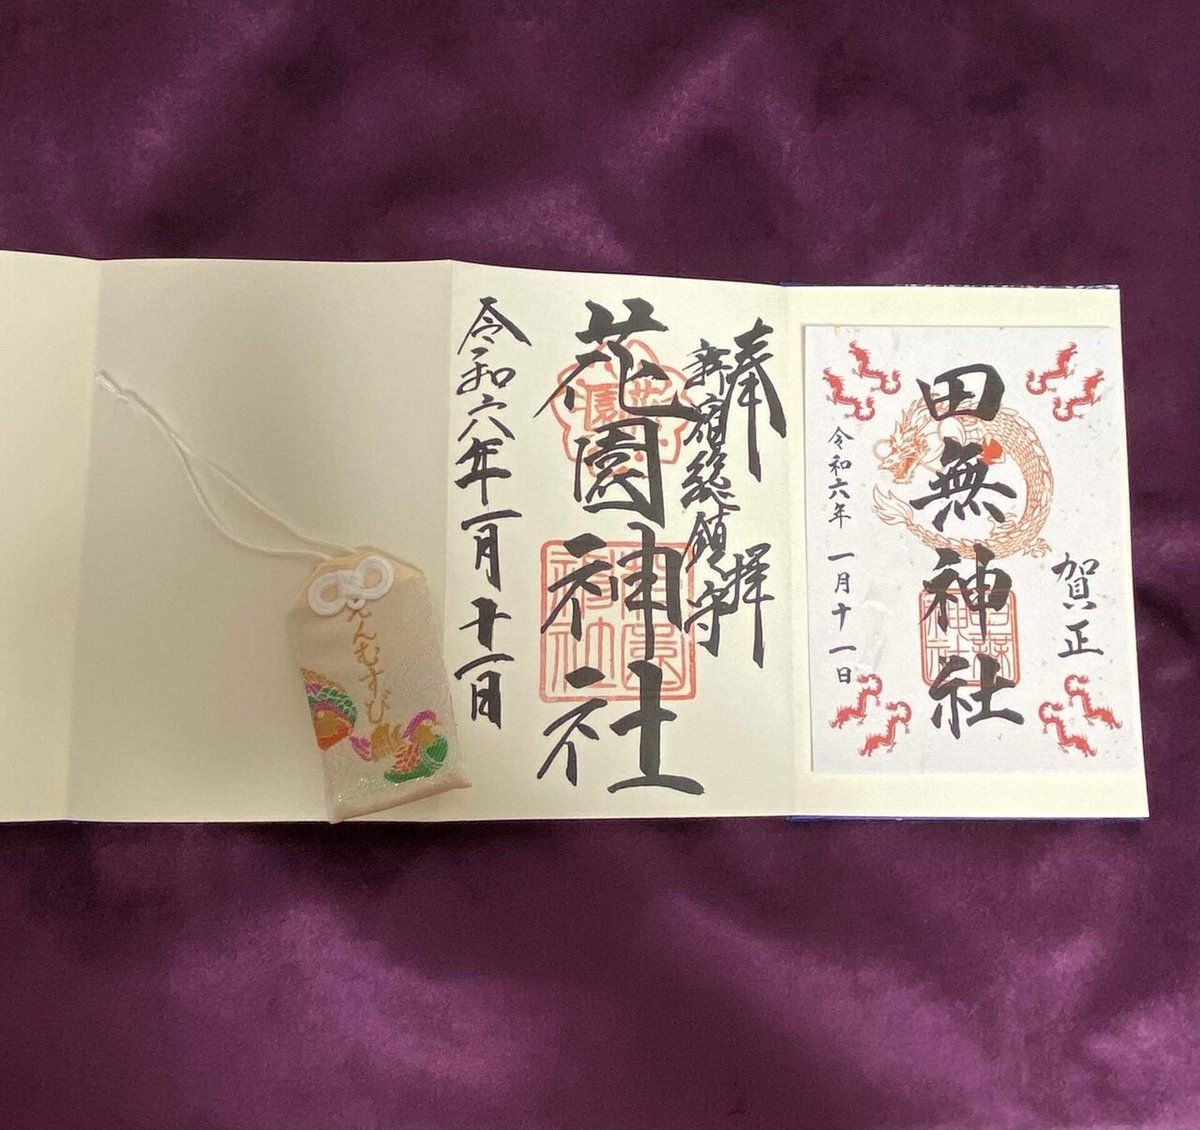 賀正
田無神社
令和六年 一月十一日
奉拝
新宿総鎮守
花園神社
令和六年一月十一日
えんむすび
花園
花園神社